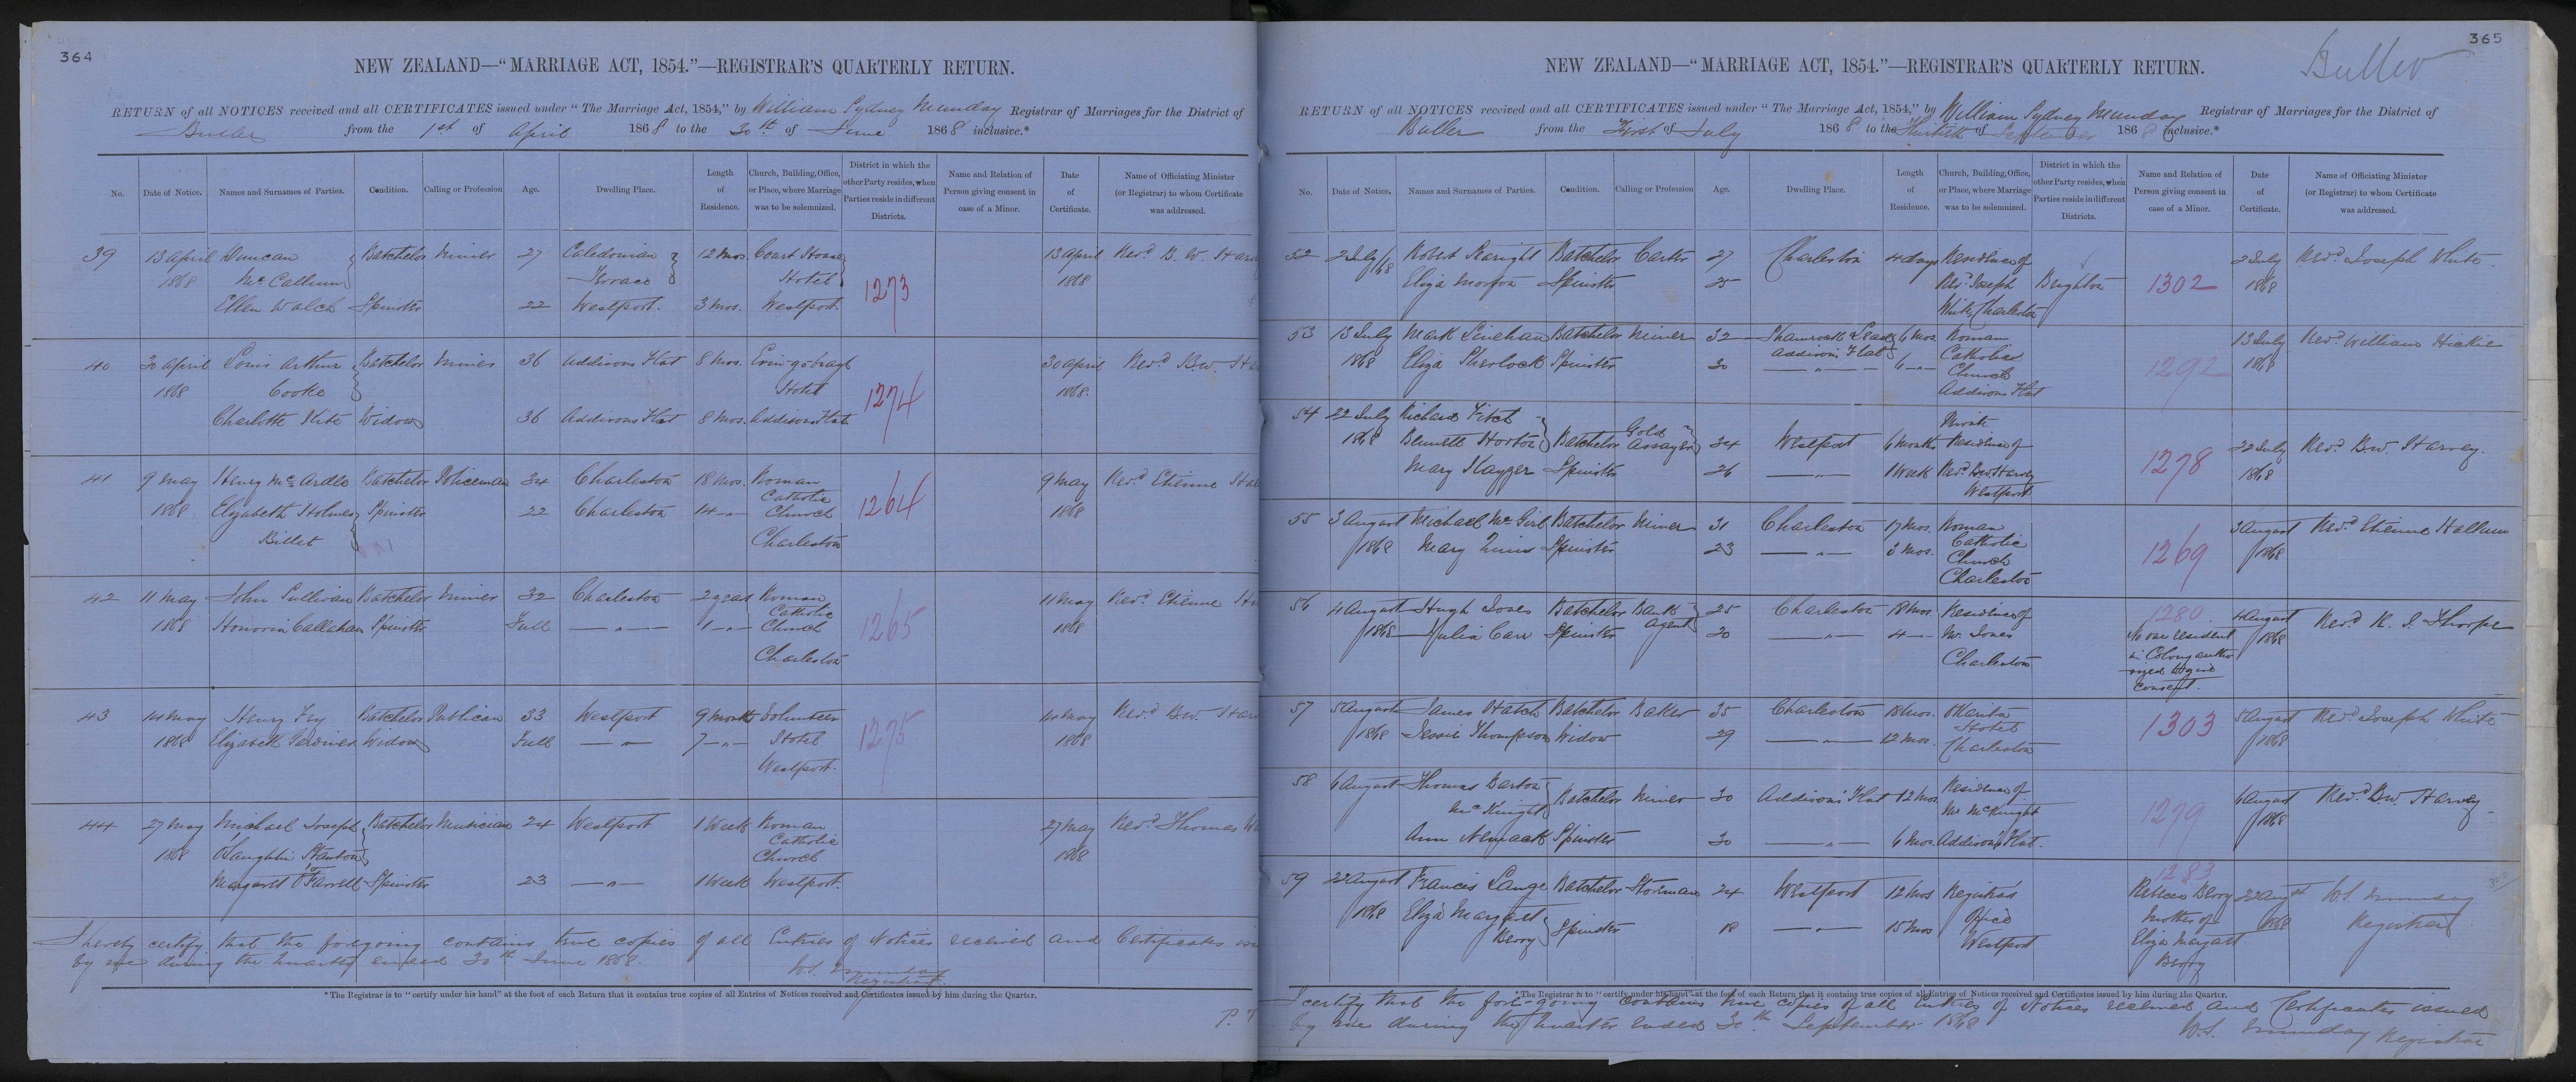 364
NEW ZEALAND—“MARRIAGE ACT, 1854.”—REGISTRAR’S QUARTERLY RETURN.
RETURN of all NOTICES received and all CERTIFICATES issued under “The Marriage Act, 1854,” by William Sydney Munday Registrar of Marriages for the District of
Buller from the 1st of April 1868 to the 30th of June 1868 inclusive.*
No. Date of Notice. Names and Surnames of Parties. Condition. Calling or Profession Age. Dwelling Place. Length of Residence. Church, Building, Office, or Place, where Marriage was to be solemnized. District in which the other Party resides, when Parties reside in different Districts. Name and Relation of Person giving consent in case of a Minor. Date of Certificate. Name of Officiating Minister (or Registrar) to whom Certificate was addressed.
39 13 April Duncan Batchelor Miner 27 Caledonian 12 mos Court House 13 April Revd B. W. Har
1868 McCallum Terrace Hotel 1273 1868
Ellen Walch Spinster 22 Westport. 3 mos. Westport.
40 30 April Louis Arthur Batchelor Miner 36 Addisons Flat 8 mos. 30 April Revd B.W. Ha
1868 Cooke Hotel 1274 1868.
Charlotte Kite Widow 36 Addisons Flat 8 mos. Addisons Flat
41 9 May Henry McArdle Batchelor Policeman 34 Charleston 18 mos. Roman 9 May Revd Etienne Hal
Catholic
1868 Elizabeth Holmes Spinster 22 Charleston 14 -"- Church 1264 1868
Billet Charleston
42 11 May John Sullivan Batchelor Miner 32 Charleston 2 years Roman 11 May Revd Etienne Ha
Catholic
1868 Honoria Callahan Spinster Full —"— 1 -"- Church 1265 1868
Charleston
43 14 May Henry Fry Batchelor Publican 33 Westport 9 months Volunteer 14 May Revd B.W. Har
1868 Elizabeth Gardiner Widow Full —"— 7 -"- Hotel 1275 1868
Westport.
44 27 May Michael Joseph Batchelor Musician 24 Westport 1 Week Roman 27 May Revd Thomas W
Catholic
1868 O'Laughlin Stanton Church 1868
Margaret O'Farrell Spinster 23 —"— 1 Week Westport.
I hereby certify that the foregoing contains true copies of all Entries of Notices received and Certificates iss
by me during the Quarter ended 30th June 1868.
W.S. Munday
Registrar.
*The Registrar is to “certify under his hand” at the foot of each Return that it contains true copies of all Entries of Notices received and Certificates issued by him during the Quarter.
P. T
365
Buller
NEW ZEALAND—“MARRIAGE ACT, 1854.”—REGISTRAR’S QUARTERLY RETURN.
RETURN of all NOTICES received and all CERTIFICATES issued under “The Marriage Act, 1854,” by William Sydney Munday Registrar of Marriages for the District of
Buller from the First of July 1868 to the Thirtieth of September 1868 inclusive.*
No. Date of Notice. Names and Surnames of Parties. Condition. Calling or Profession Age. Dwelling Place. Length of Residence. Church, Building, Office, or Place, where Marriage was to be solemnized. District in which the other Party resides, when Parties reside in different Districts. Name and Relation of Person giving consent in case of a Minor. Date of Certificate. Name of Officiating Minister (or Registrar) to whom Certificate was addressed.
52 2 July/68 Robert Searight Batchelor Carter 27 Charleston 4 days Residence of 2 July Revd Joseph White.
Eliza Morton Spinster 25 Revd Joseph Brighton 1302 1868
White Charleston
53 13 July Mark Linehan Batchelor Miner 32 Shamrock Lead 6 mos. Roman 13 July Revd William Hickie
Addisons Flat
1868 Eliza Sherlock Spinster 30 —"— 6 -"- Catholic 1292 1868
Church
Addisons Flat
54 22 July Richard Fitch 22 July Revd B.W. Harvey.
1868 Bennett Horton Batchelor Gold Assayer 34 Westport 6 months Residence of 1868
Mary Kayger Spinster 26 —"— 1 Week Revd B.W. Harvey 1278
Westport
55 3 August Michael McGirl Batchelor Miner 31 Charleston 17 mos. Roman 3 August Revd Etienne Hallum
1868 Mary Quinn Spinster 23 —"— 3 mos. Catholic 1269 1868
Church
Charleston
56 4 August Hugh Jones Batchelor Bank Agent 25 Charleston 18 mos. Residence of 1280 4 August Revd R. J. Thorpe
1868 Julia Carr Spinster 20 —"— 4 -"- Mr. Jones No one resident 1868
Charleston in Colony autho
rized to give
consent.
57 5 August James Hatch Batchelor Baker 35 Charleston 18 mos. Okarita 5 August Revd Joseph White
1868 Jessie Thompson Widow 29 —"— 12 mos. Hotel 1303 1868
Charleston
58 6 August Thomas Barton Batchelor Miner 30 Addisons Flat 12 mos. Residence of 6 August Revd B.W. Harvey
McKnight Mr McKnight 1279 1868
Ann Spinster 30 —"— 6 mos. Addisons Flat.
59 22 August Francis Lange Batchelor Storeman 24 Westport 12 mos Registrar's 1283 Rebecca Berry 22 August W.S. Munday
1868 Eliza Margaret Office mother of 1868 Registrar
Berry Spinster 18 —"— 15 mos Westport Eliza Margaret
Berry
*The Registrar is to “certify under his hand” at the foot of each Return that it contains true copies of all Entries of Notices received and Certificates issued by him during the Quarter.
I certify that the fore-going contains true copies of all Entries of Notices received and Certificates issued
by me during the Quarter ended 30th September 1868
W.S. Munday Registrar